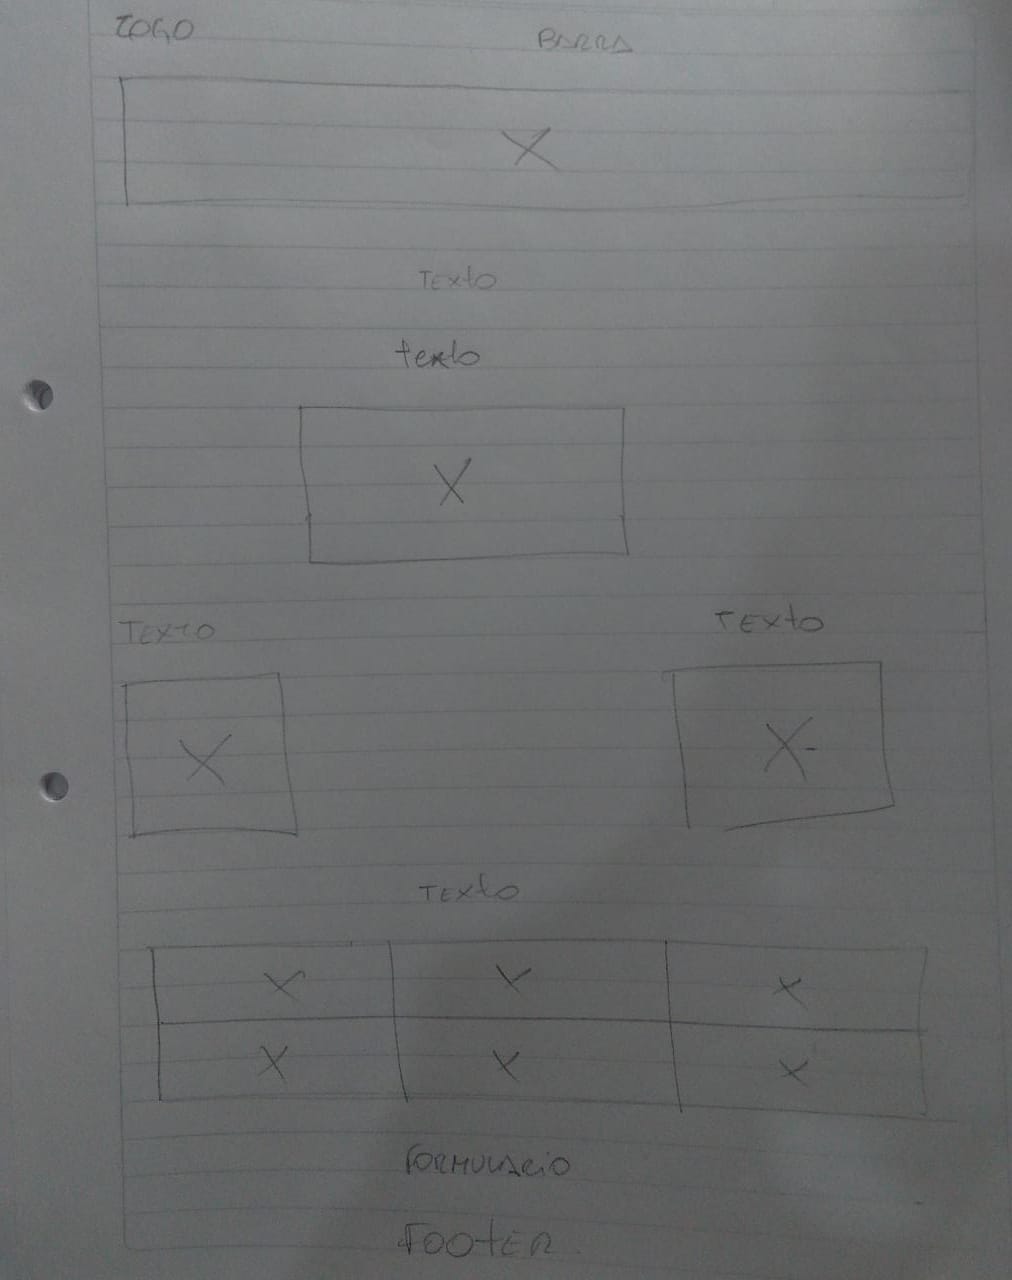 LOGO BARRA
X
Texto
texto
X
TEXTO TExto
X X-
TExto
X X X
X X X
FORMULARIO
FOOTER